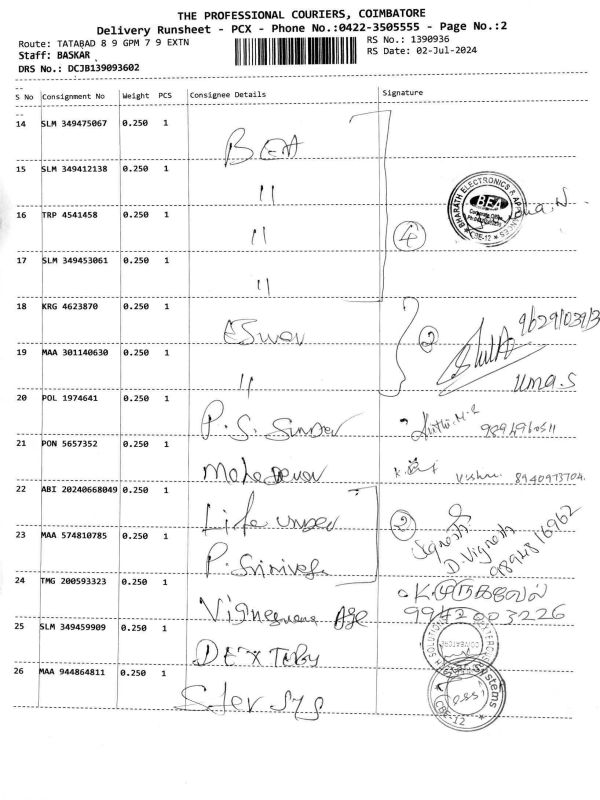 THE PROFESSIONAL COURIERS, COIMBATORE
Delivery Runsheet - PCX - Phone No.:0422-3505555 - Page No.:2
Route: TATABAD 8 9 GPM 7 9 EXTN
RS No.: 1390936
Staff: BASKAR
RS Date: 02-Jul-2024
DRS No.: DCJB139093602
S No Consignment No Weight PCS Consignee Details Signature
14 SLM 349475067 0.250 1 BEA
15 SLM 349412138 0.250 1 "
BHARATH ELECTRONICS & APPLIANCES
BEA
CBE-12
16 TRP 4541458 0.250 1 "
4
17 SLM 349453061 0.250 1 "
18 KRG 4623870 0.250 1 Eswar
2
19 MAA 301140630 0.250 1 "
Uma.S
20 POL 1974641 0.250 1 P.S. Sunder
21 PON 5657352 0.250 1 Mahadevan
Vishnu 8940973704.
22 ABI 20240668049 0.250 1 Life under
2
23 MAA 574810785 0.250 1
D. Vignesh
9892816962
24 TMG 200593323 0.250 1
முருகவேல்
9942003226
25 SLM 349459909 0.250 1
26 MAA 944864811 0.250 1
Systems
CBE-12